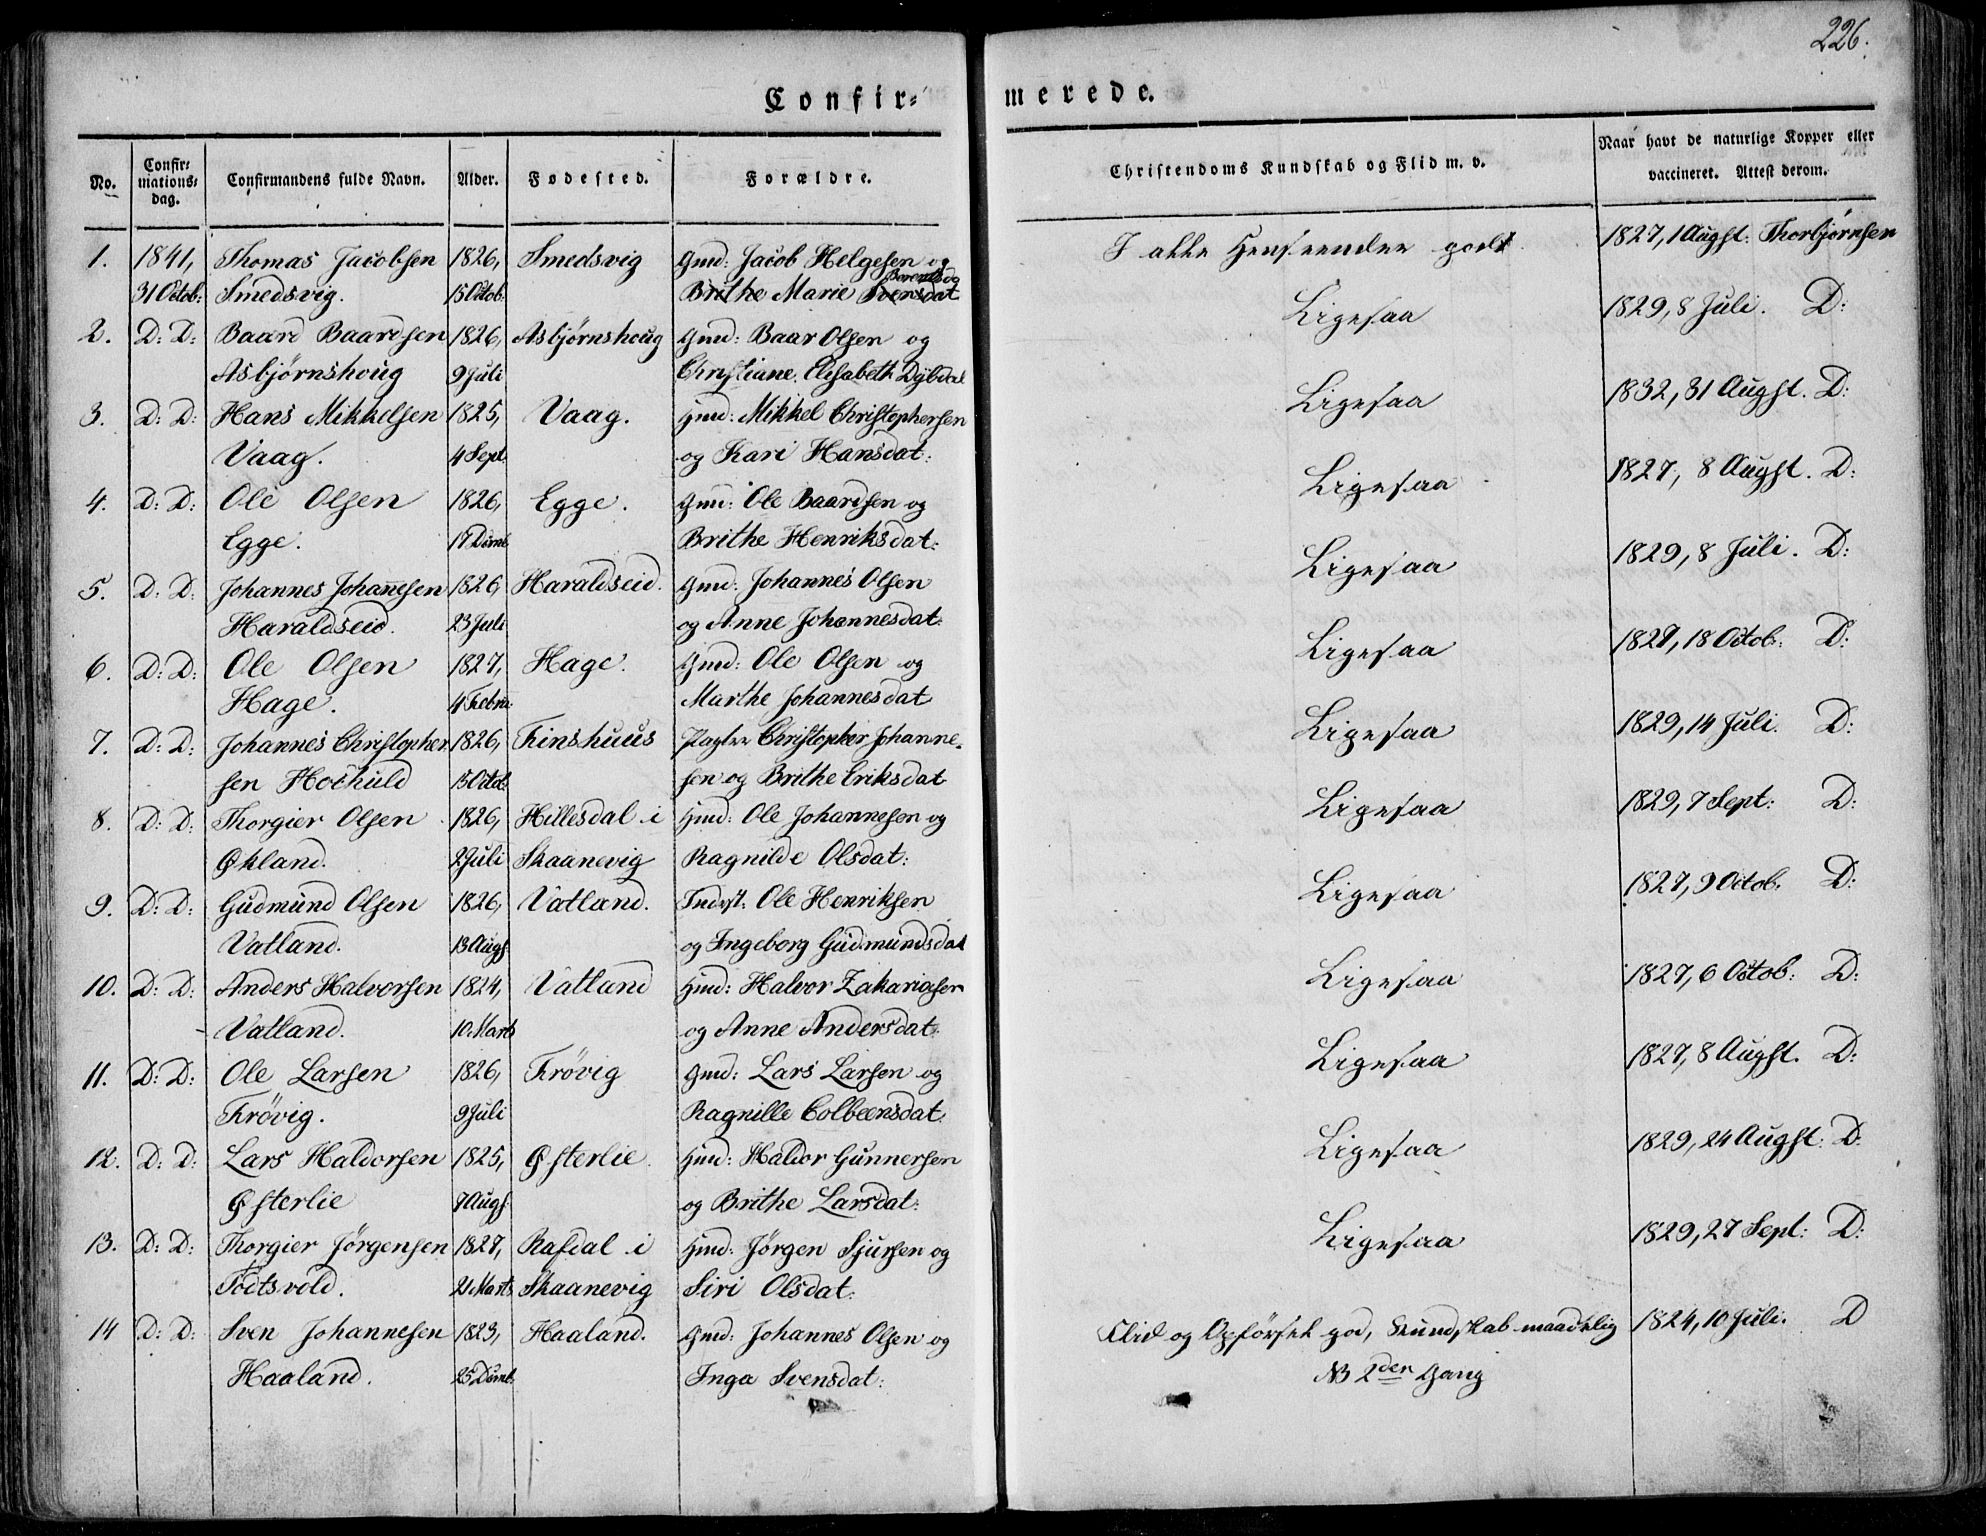 226.
Confir=
merede.
No.
Confir=
mations=
dag.
Confirmandens fulde Navn.
Alder.
Fødested.
Forældre.
Christendoms Kundskab og Flid m. v.
Naar havt de naturlige Kopper eller
vaccineret. Attest derom.
1. 1841, Thomas Jacobsen 1826, Smedsvig Gmd: Jacob Helgesen og I alle Henseender godt 1827, 1 Augst: Thorbjørnsen
31 Octob: Smedsvig. 15 Octob: Brithe Marie Svensdat
2. D: D: Baard Baardsen 1826, Asbjørnshoug Gmd: Baar Olsen og Ligesaa 1829, 8 Juli. D:
Asbjørnshoug 9 Juli Christiane Elisabeth
3. D: D: Hans Mikkelsen 1825, Vaag. Hmd: Mikkel Christophersen Ligesaa 1832, 31 Augst. D:
Vaag. 4 Sept. og Kari Hansdat:
4. D: D: Ole Olsen 1826, Egge. Gmd: Ole Baardsen og Ligesaa 1827, 8 Augst. D:
Egge. 17 Dcmb Brithe Henriksdat:
5. D: D: Johannes Johannesen 1826, Haraldseid. Gmd: Johannes Olsen Ligesaa 1829, 8 Juli. D:
Haraldseid. 23 Juli og Anne Johannesdat:
6. D: D: Ole Olsen 1827, Hage. Gmd: Ole Olsen og Ligesaa 1827, 18 Octob: D:
Hage. 4 Febru: Marthe Johannesdat
7. D: D: Johannes Christopher 1826, Finshuus Christopher Johanne- Ligesaa 1829, 14 Juli. D:
sen 15 Octob: sen og Brithe Eriksdat
8. D: D: Thorgier Olsen 1826, Hillesdal i Hmd: Ole Johannesen og Ligesaa 1829, 7 Sept: D:
Økland. 2 Juli Skaanevig Ragnilde Olsdat:
9. D: D: Gudmund Olsen 1826, Vatland. Inderst: Ole Henriksen Ligesaa 1827, 9 Octob. D:
Vatland. 13 Augs og Ingeborg Gudmundsdat
10. D: D: Anders Halvorsen 1824, Vatland Hmd: Halvor Zakariasen Ligesaa 1827, 6 Octob: D:
Vatland. 10. Marts og Anne Andersdat:
11. D: D: Ole Larsen 1826, Frövig Gmd: Lars Larsen og Ligesaa 1827, 8 Augst. D:
Frövig. 9 Juli Ragnille Colbeensdat:
12. D: D: Lars Haldorsen 1825, Østerlie. Hmd: Haldor Gunnersen Ligesaa 1829, 24 Augst: D:
Østerlie 7 Augs og Brithe Larsdat:
13. D: D: Thorgier Jörgensen 1827, Rafdal i Hmd: Jörgen Sjursen og Ligesaa 1829, 27 Sept: D:
Todtsvold. 21 Marts Skaanevig Siri Olsdat:
14 D: D: Sven Johannesen 1823, Haaland. Gmd: Johannes Olsen og Flid og Opførsel god, Kundskab maadelig 1824, 10 Juli. D
Haaland. 25 Dcmb: Inga Svensdat: NB 2den Gang